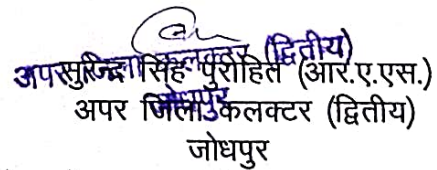 अपर जिला कलक्टर (द्वितीय)
जोधपुर
सुरेन्द्र सिंह पुरोहित (आर.ए.एस.)
अपर जिला कलक्टर (द्वितीय)
जोधपुर